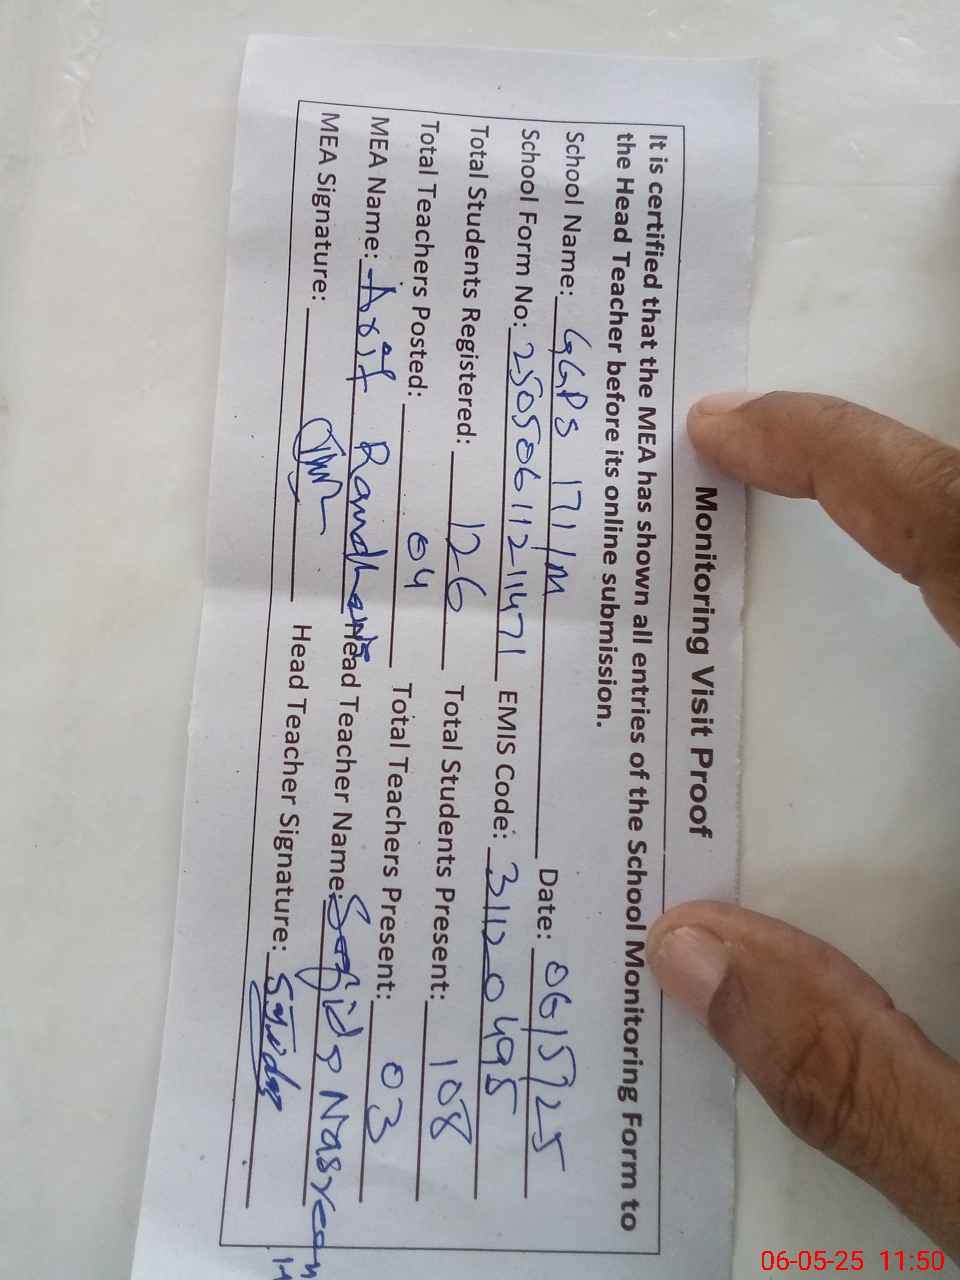 Monitoring Visit Proof
It is certified that the MEA has shown all entries of the School Monitoring Form to
the Head Teacher before its online submission.
School Name: GGPS 171/M Date: 06/5/25
School Form No: 25050611211471 EMIS Code: 31120495
Total Students Registered: 126 Total Students Present: 108
Total Teachers Posted: 04 Total Teachers Present: 03
MEA Name: Arif Randhawa Head Teacher Name: Sajida Nasreen
MEA Signature: Head Teacher Signature: Sajida
06-05-25 11:50